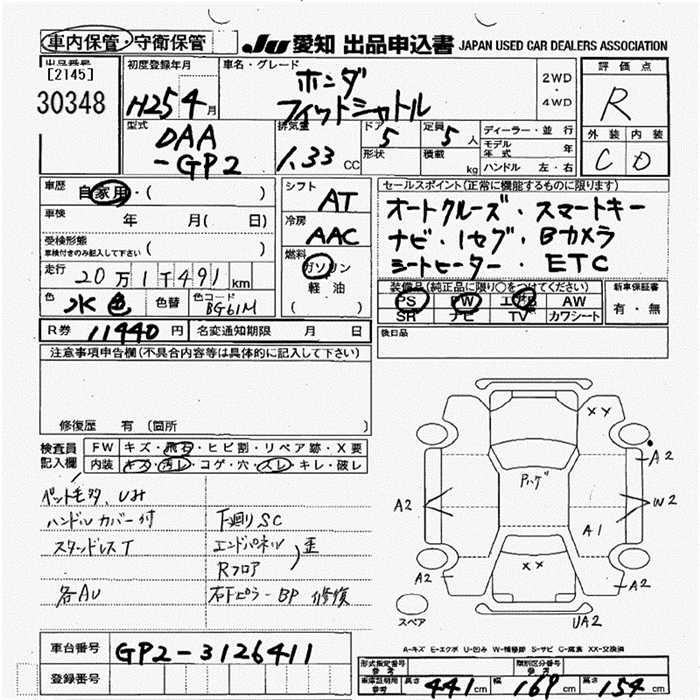 車内保管・守衛保管
JU 愛知 出品申込書 JAPAN USED CAR DEALERS ASSOCIATION
出品番号
[2145]
30348
初度登録年月
H25 4月
車名・グレード
ホンダ
フィットシャトル
2WD
・
4WD
評価点
R
外装 内装
C D
型式
DAA
-GP2
排気量
1.33 CC
ドア
5
形状
定員
5人
積載
kg
ディーラー・並行
モデル年式 年
ハンドル 左・右
車歴
自家用・( )
車検
年 月( 日)
受検形態
車検付きのみ記入して下さい ( )
走行
20万1千491km
色
水色
色替
色コード
BG61M
シフト
AT
冷房
AAC
燃料
ガソリン
軽油
( )
セールスポイント(正常に機能するものに限ります)
オートクルーズ・スマートキー
ナビ・1セグ・Bカメラ
シートヒーター・ETC
装備品(純正品に限り○をつけてください)
PS PW エアB AW
SR ナビ TV カワシート
新車保証書
有・無
R券 11440円
名変通知期限 月 日
後日品
注意事項申告欄(不具合内容等は具体的に記入して下さい)
修復歴 有 〔箇所 〕
検査員
記入欄
FW キズ・飛石・ヒビ割・リペア跡・X要
内装 キズ・汚レ・コゲ・穴・スレ・キレ・破レ
ハンドルカバー付
スタッドレスT
各AU
下廻りSC
エンドパネル
Rフロア
歪
右Fピラー BP 修復
XX
A2
W2
A2
A1
XX
A2
A2
UA2
スペア
A-キズ E-エクボ U-凹み W-補修跡 S-サビ C-腐蝕 XX-交換済
車台番号
GP2-3126411
登録番号
形式指定番号
参考
類別区分番号
参考
車庫証明用
参考
長さ 441cm 幅 169cm 高さ 154cm